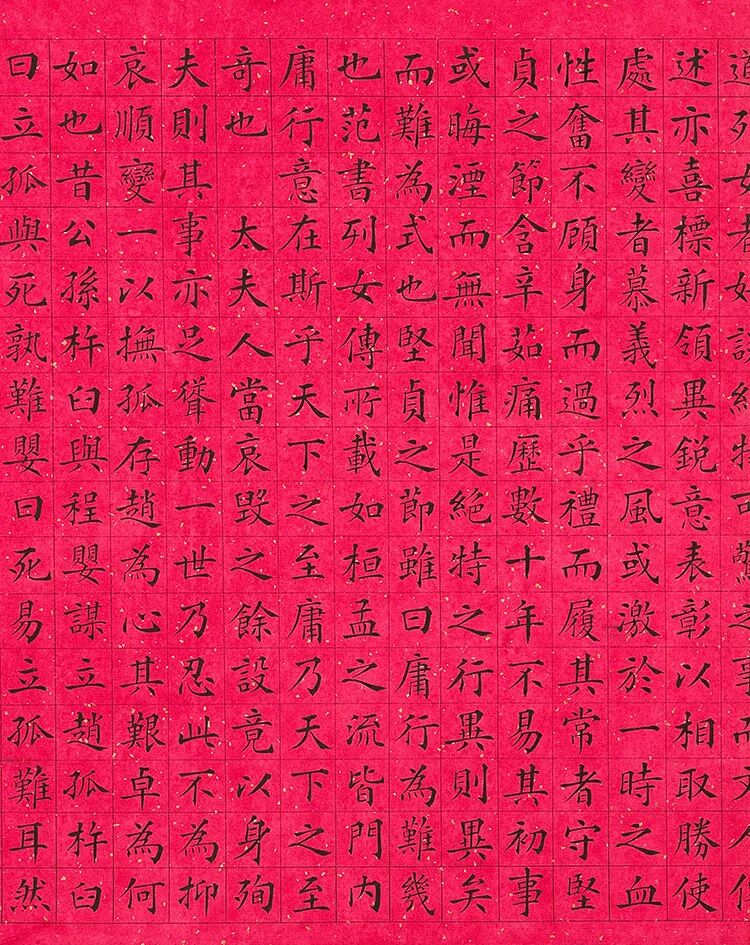 道列女者如紀特可驚之事而文人
述亦喜標新領異銳意表彰以相取勝使
處其變者慕義烈之風或激於一時之血
性奮不顧身而過乎禮而履其常者守堅
貞之節含辛茹痛歷數十年不易其初事
或晦湮而無聞惟是絕特之行異則異矣
而難為式也堅貞之節雖曰庸行為難幾
也范書列女傳所載如桓孟之流皆門內
庸行意在斯乎天下之至庸乃天下之至
奇也 太夫人當哀毀之餘設竟以身殉
夫則其事亦足聳動一世乃忍此不為抑
哀順變一以撫孤存趙為心其艱卓為何
如也昔公孫杵臼與程嬰謀立趙孤杵臼
曰立孤與死孰難嬰曰死易立孤難耳然